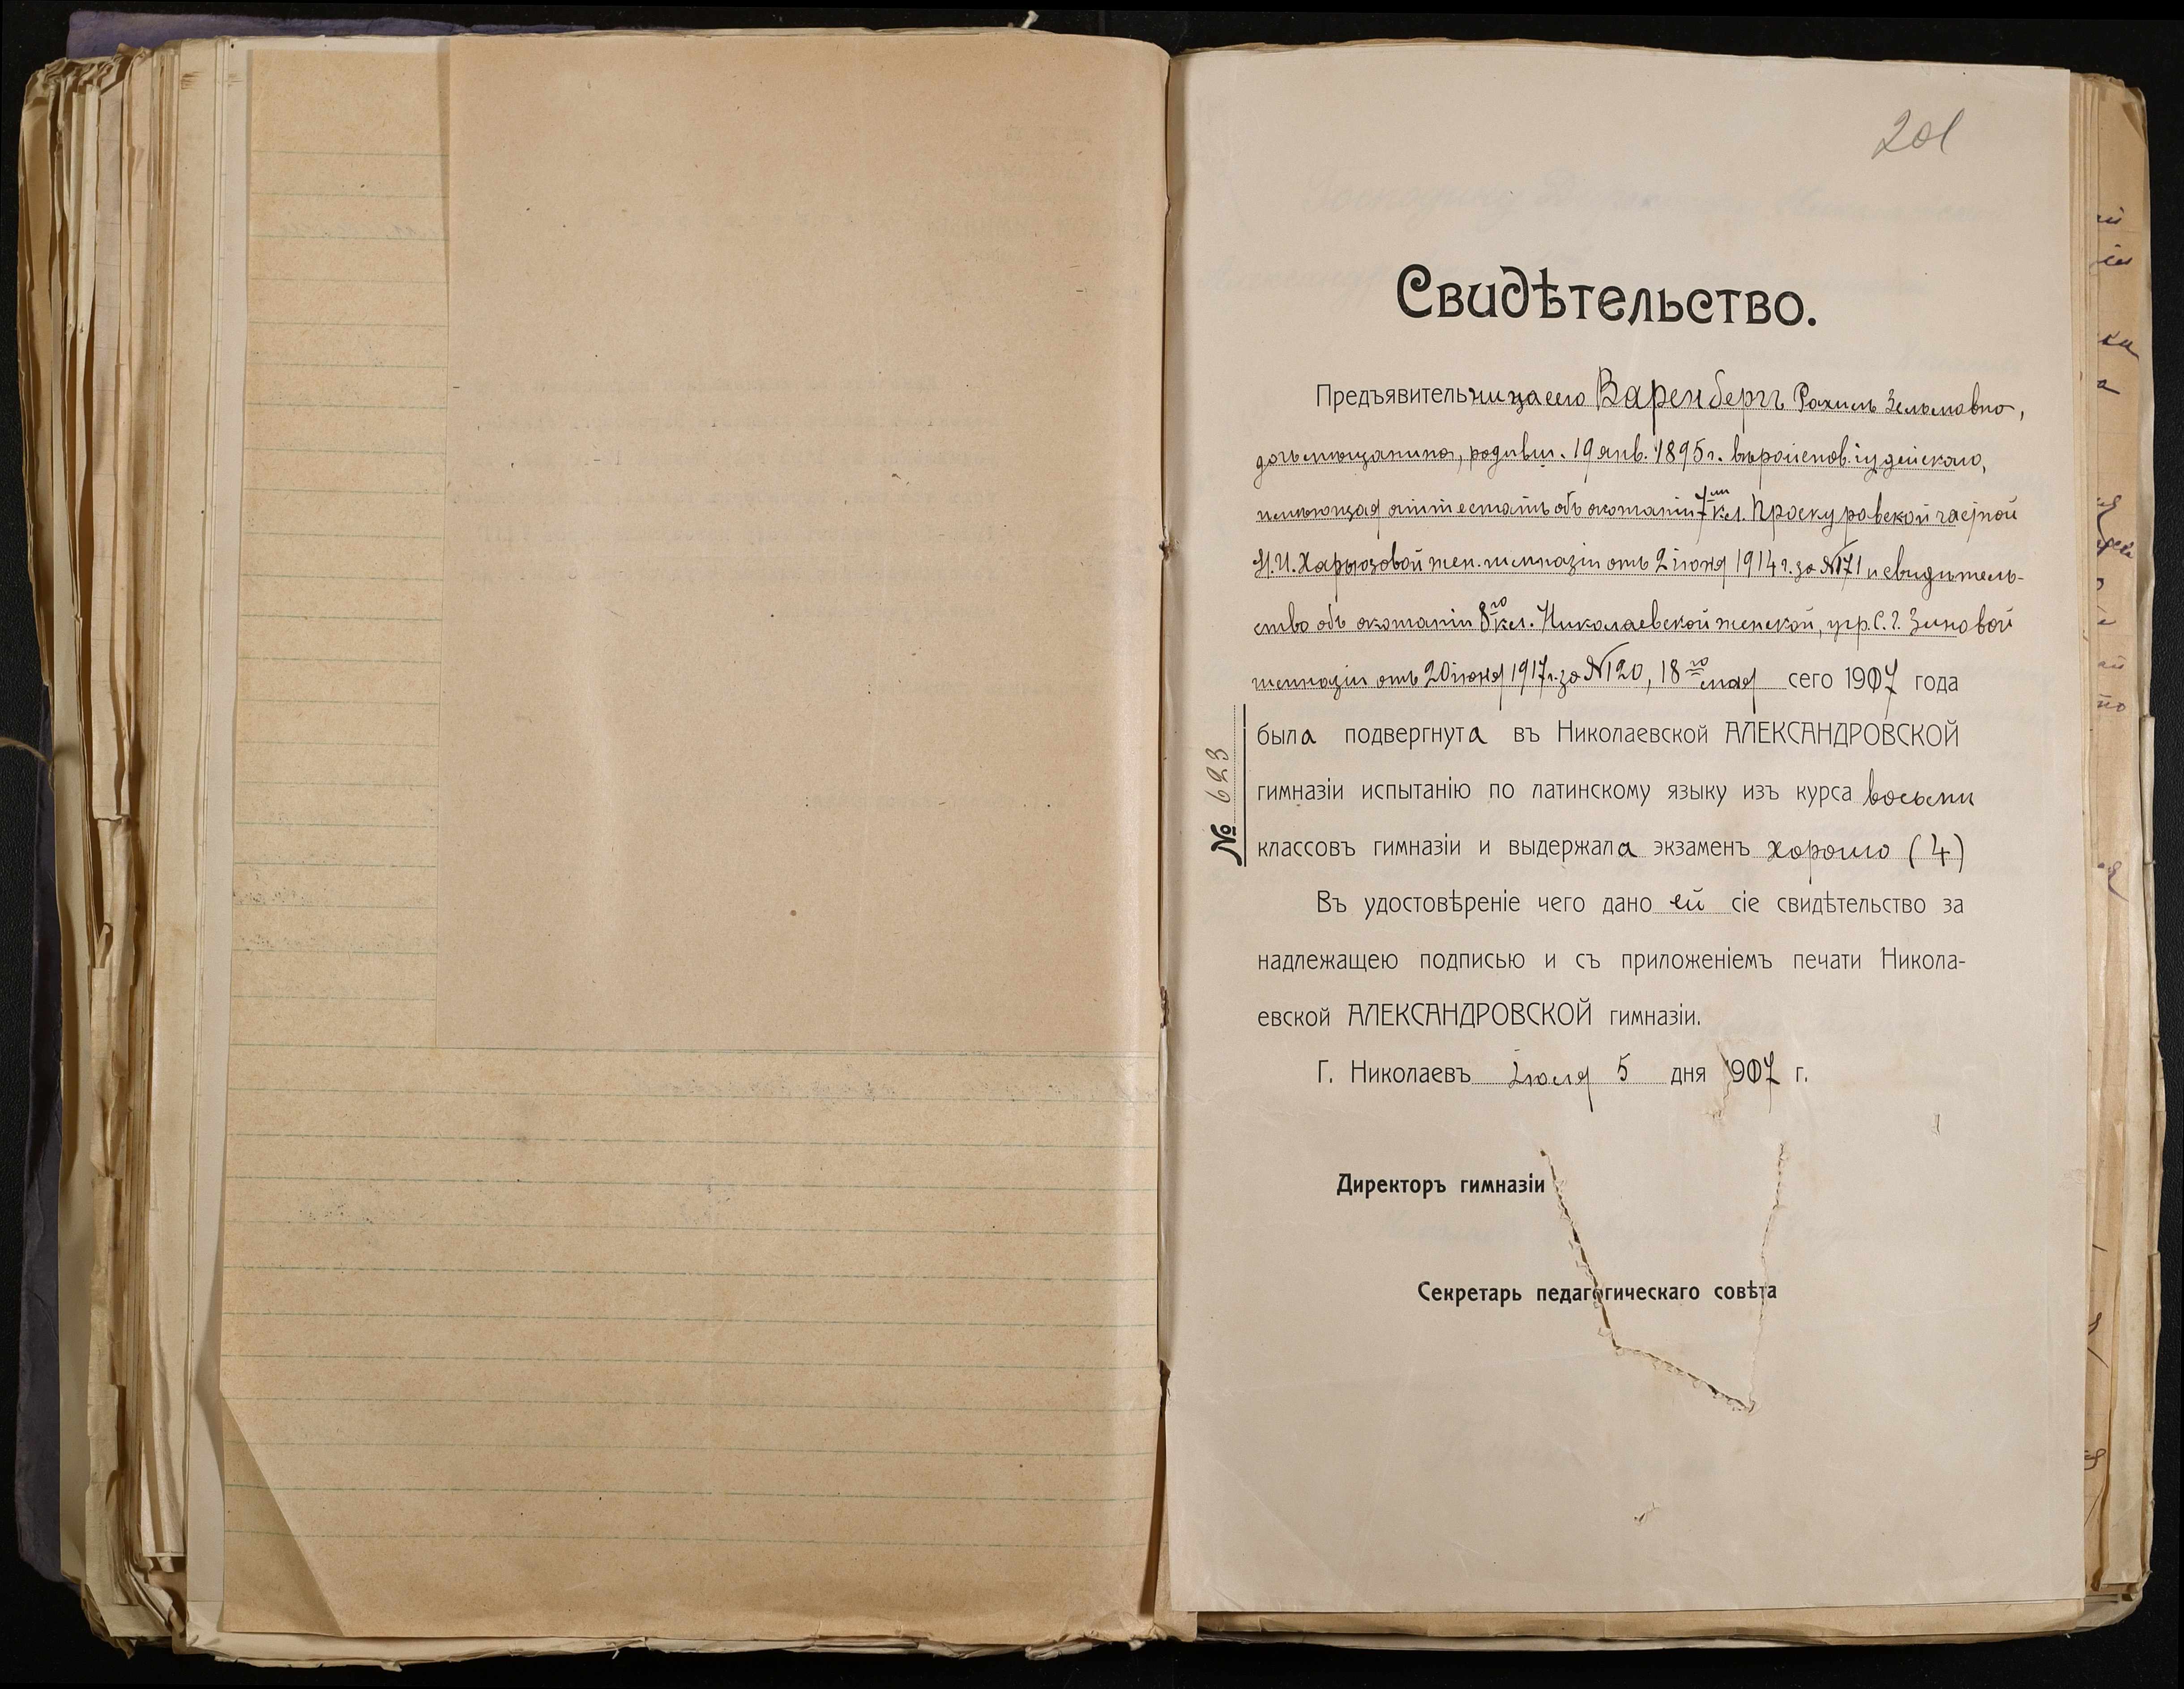 201
Свидѣтельство.
Предъявительница сего Варенбергъ Рахиль Зельмановна,
дочь мѣщанина, родивш. 19 янв. 1895 г. вѣроисповѣд. іудейскаго,
имѣющая аттестатъ объ окончаніи 7ми кл. Проскуровской частной
Харьюзовой жен. гимназіи отъ 2 іюня 1914 г. за №171 и свидѣтель-
ство объ окончаніи 8го кл. Николаевской женской, учр. С. Г. Зиновой
гимназіи отъ 20 іюня 1917 г. за №120, 18го мая сего 1907 года
была подвергнута въ Николаевской АЛЕКСАНДРОВСКОЙ
гимназіи испытанію по латинскому языку изъ курса восьми
классовъ гимназіи и выдержала экзаменъ хорошо (4)
№ 623
Въ удостовѣреніе чего дано ей сіе свидѣтельство за
надлежащею подписью и съ приложеніемъ печати Никола-
евской АЛЕКСАНДРОВСКОЙ гимназіи.
Г. Николаевъ Іюля 5 дня 1907 г.
Директоръ гимназіи
Секретарь педагогическаго совѣта